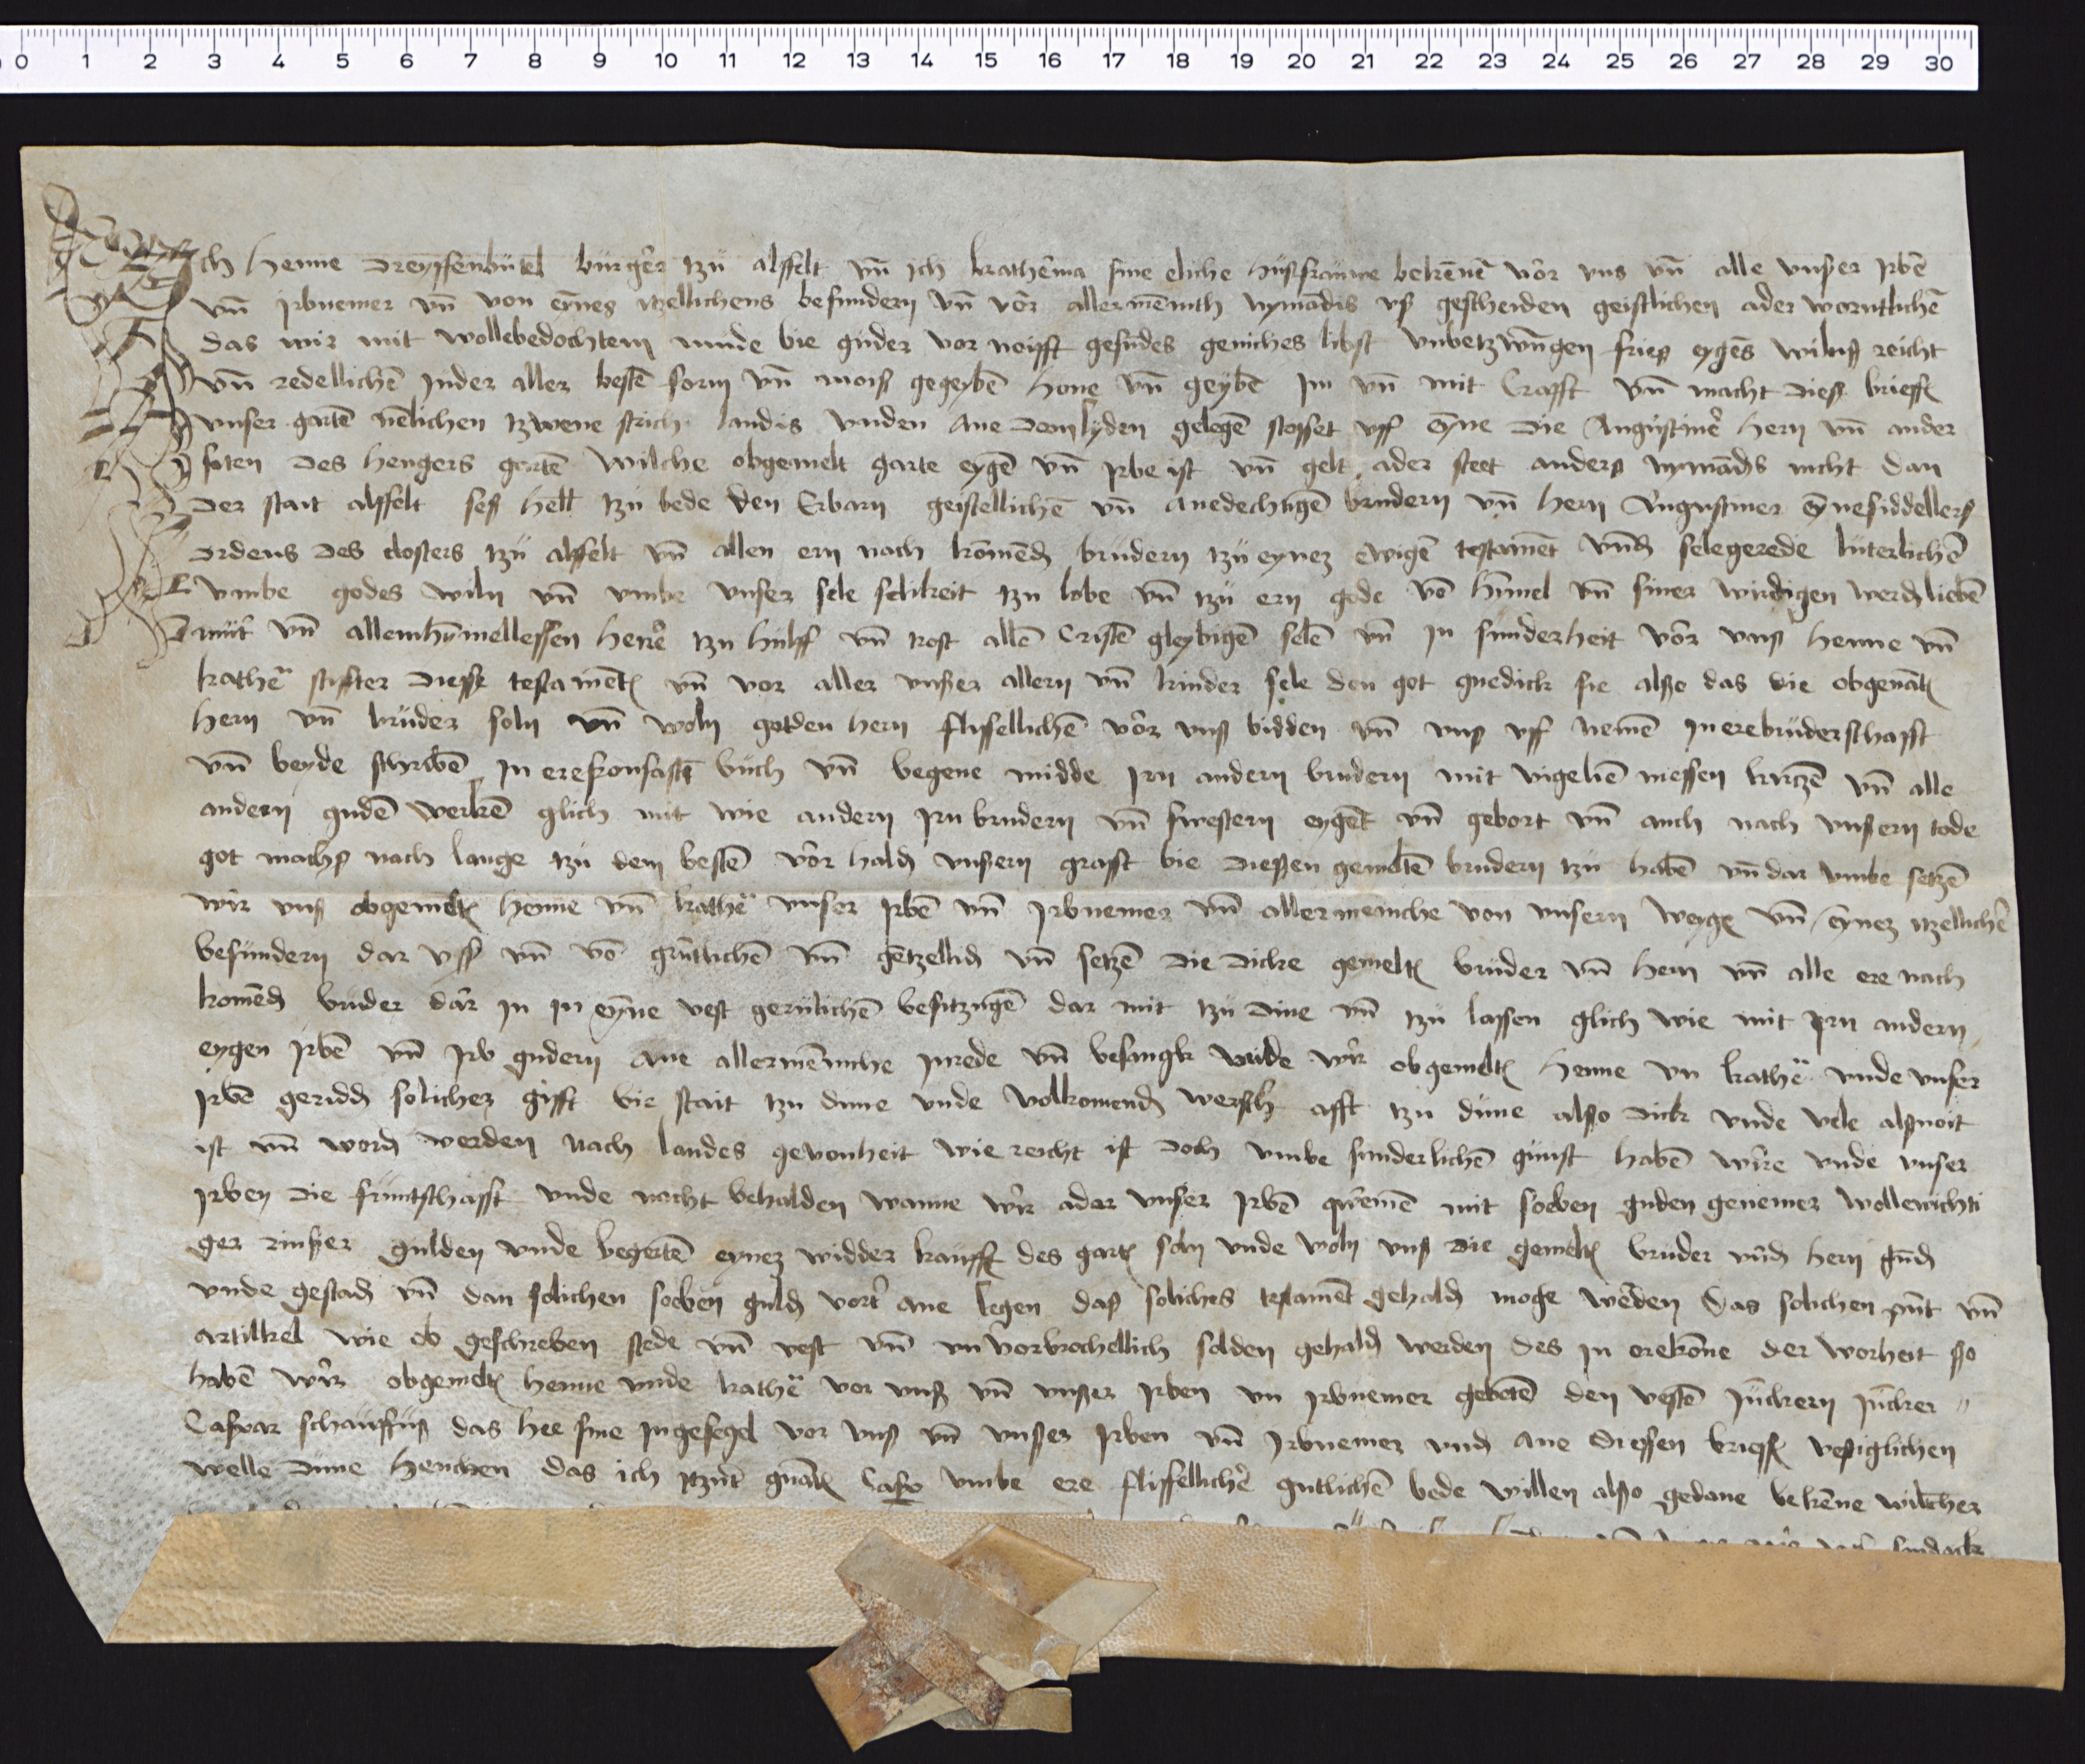 0 1 2 3 4 5 6 7 8 9 10 11 12 13 14 15 16 17 18 19 20 21 22 23 24 25 26 27 28 29 30
Ich Henne Dreyssenbutel burger tzu alsfelt vn̄ ich katherina sine eliche hußfrauwe bekēnē vor vns vn̄ alle vnßer jrbē
vn̄ jrbnemer vn̄ von eynes itzellichens besundern vn̄ vor allermēnich nymādis vß gescheiden geistlichen ader werntlichē
das wir mit wollebedochtem mude bie guder vor noifft gesundes geniches libst vnbetzwūngen fries eygēs willnß reicht
vn̄ redellichē jnder aller bestē form vn̄ moiß gegeybē hone vn̄ geybē jm vn̄ mit Crafft vn̄ macht dieß brieffs
vnser gartē nēlichen tzwene strich landis vnden ane dem lyden gelegē stosset vff eyne die Augustiner hern vn̄ ander
siten des hengers gartē wilche obgemelt garte eygē vn̄ jrbe ist vn̄ gelt ader steet anders nymādis nicht dan
der stait alsfelt seß hell tzu bede den Erbarn geistellichē vn̄ anedechtigē brudern vn̄ hern Augustiner eynesiddellers
Ordens des closters tzu alsfelt vn̄ allen ern noch komēd brudern tzu eynez ewigē testamēt vnd selegerede luterlichē
vmbe godes wiln vn̄ vmbe vnser sele selikeit tzu lobe vn̄ tzu ern gode vō himel vn̄ siner wirdigen werd liebē
mut vn̄ allemhymellessen here tzu hulff vn̄ trost allē Cristē gleybigē selē vn̄ in sunderheit vor vnß henne vn̄
kathē stiffter dießs testamēts vn̄ vor aller vnßer allern vn̄ kinder sele den got gnedick sie alßo das die obgenāt
hern vn̄ bruder soln vn̄ woln got den hern flissellichē vor vnß bidden vn̄ vnß vff nemē in ere bruderschafft
vn̄ beyde schribē in ere buch vn̄ begene midde jrn andern brudern mit vigeliē messen kirtzē vn̄ alle
andern gudē werkē glich mit wie andern jrn brudern vn̄ swestern eygēt vn̄ gebort vn̄ auch nach vnßern tode
got machß nach lange tzu dem bestē vor hald vnßern grafft bie dießen gemeltē brudern tzu habē vn̄ dar vmbe setzē
wir vnß obgemelt henne vn̄ kathē vnser jrbē vn̄ jrbnemer vn̄ allermeniche von vnsern weygē vn̄ eynez itzellichē
besundern dar vss vn̄ vō gruntlichē vn̄ gētzellich vn̄ setzē die dicke gemelt bruder vn̄ hern vn̄ alle ere nach
komēd bruder dar in in eyne vest gerulichē besitzugē dar mit tzu dine vn̄ tzu lassen glich wie mit jrn andern
eygen jrbē vn̄ jrb gudern ane allermēniche inrede vn̄ besangk vnde wir obgemelt henne vn kathē vnde vnser
jrbē geridd solicher gifft bie stait tzu dune vnde volkomend werschafft tzu dune alßo dick vnde vele alßnoit
ist vn̄ word werden nach landes gewonheit wie reicht ist doch vmbe sunderlichē gunst habē wire vnde vnser
jrben die fruntschafft vnde macht behalden wanne wir ader vnser jrbē qwemē mit soeben guden genemer wollewichti
ger rinßer gulden vnde begertē eynez widder kauffs des garts soln vnde woln vnß die gemelt bruder vnd hern gund
vnde gestad vn̄ dan solichen soeben guld vort ane legen daß soliches testamēt gehald moge werden das solichen punt vn̄
artikkel wie ob geschreben stede vn̄ vest vn̄ vnvorbrochellich solden gehald werden des in orekōne der worheit so
habē wir obgemelt henne vnde kathē vor vnß vn̄ vnßer jrben vn jrbnemer gebetē den vestē junckern juncker
Caspar schauffuß das hee sine ingesegel vor vnß vn̄ vnßer jrben vn̄ jrbnemer vnd ane diessen brieff vestiglichen
welle dune hencken das ich itzunt gnāt Caspar vmbe ere flissellichē gutlichē bede willen alßo gedane bekēne wilcher